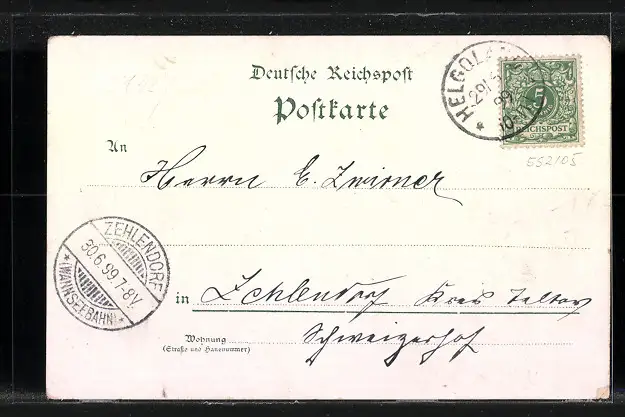 Deutsche Reichspost
Postkarte
HELGOLAND
29/6
99
10-11
5
REICHSPOST
5S2105
An
Herrn E. Zwirner
ZEHLENDORF
30.6.99 7-8V.
*(WANNSEEBAHN)*
in Zehlendorf Kreis Teltow
Wohnung
(Straße und Hausnummer)
Schweizerhof